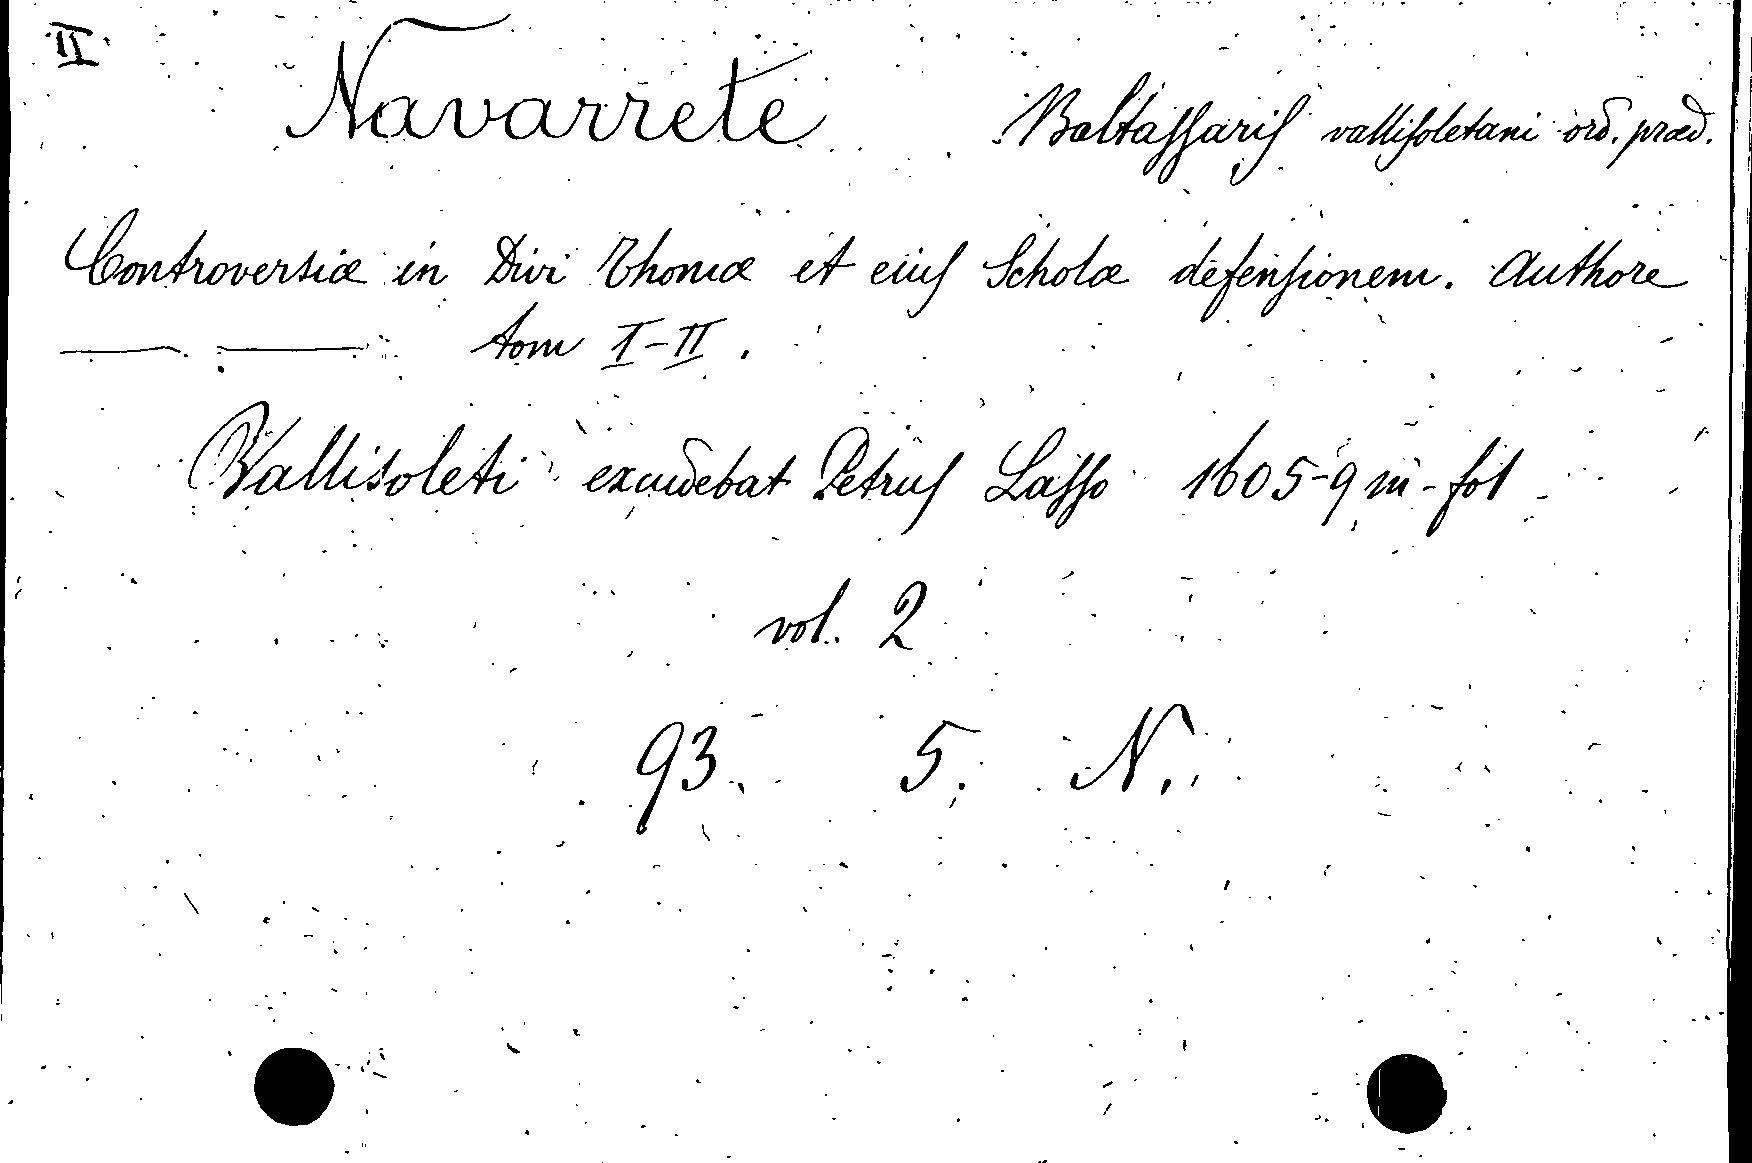 II.
Navarrete Baltassaris vallisoletani ord. præd.
Controversiæ in Divi Thomæ et eius Scholæ defensionem. Authore
— — tom I-II.
Vallisoleti excudebat Petrus Lasso 1605-9 in-fol
vol. 2
93. 5. N.